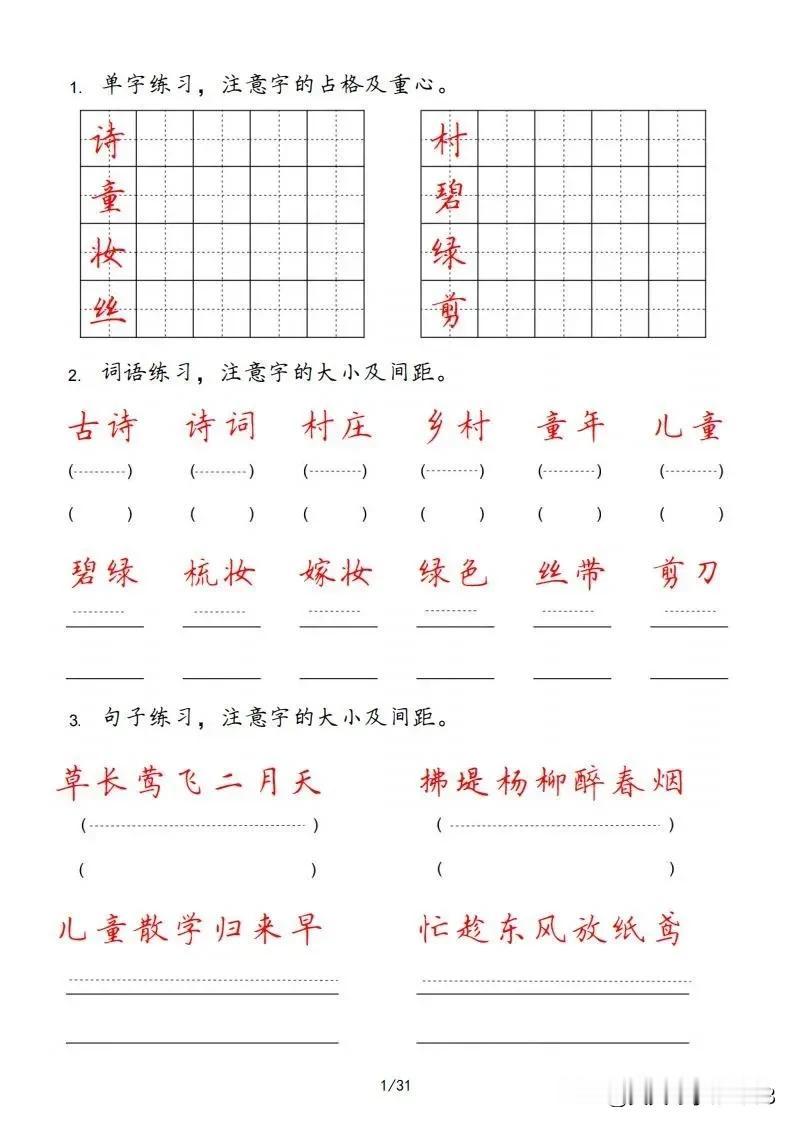 1. 单字练习，注意字的占格及重心。
诗 村
童 碧
妆 绿
丝 剪
2. 词语练习，注意字的大小及间距。
古诗 诗词 村庄 乡村 童年 儿童
( ) ( ) ( ) ( ) ( ) ( )
( ) ( ) ( ) ( ) ( ) ( )
碧绿 梳妆 嫁妆 绿色 丝带 剪刀
3. 句子练习，注意字的大小及间距。
草长莺飞二月天 拂堤杨柳醉春烟
( ) ( )
( ) ( )
儿童散学归来早 忙趁东风放纸鸢
1/31